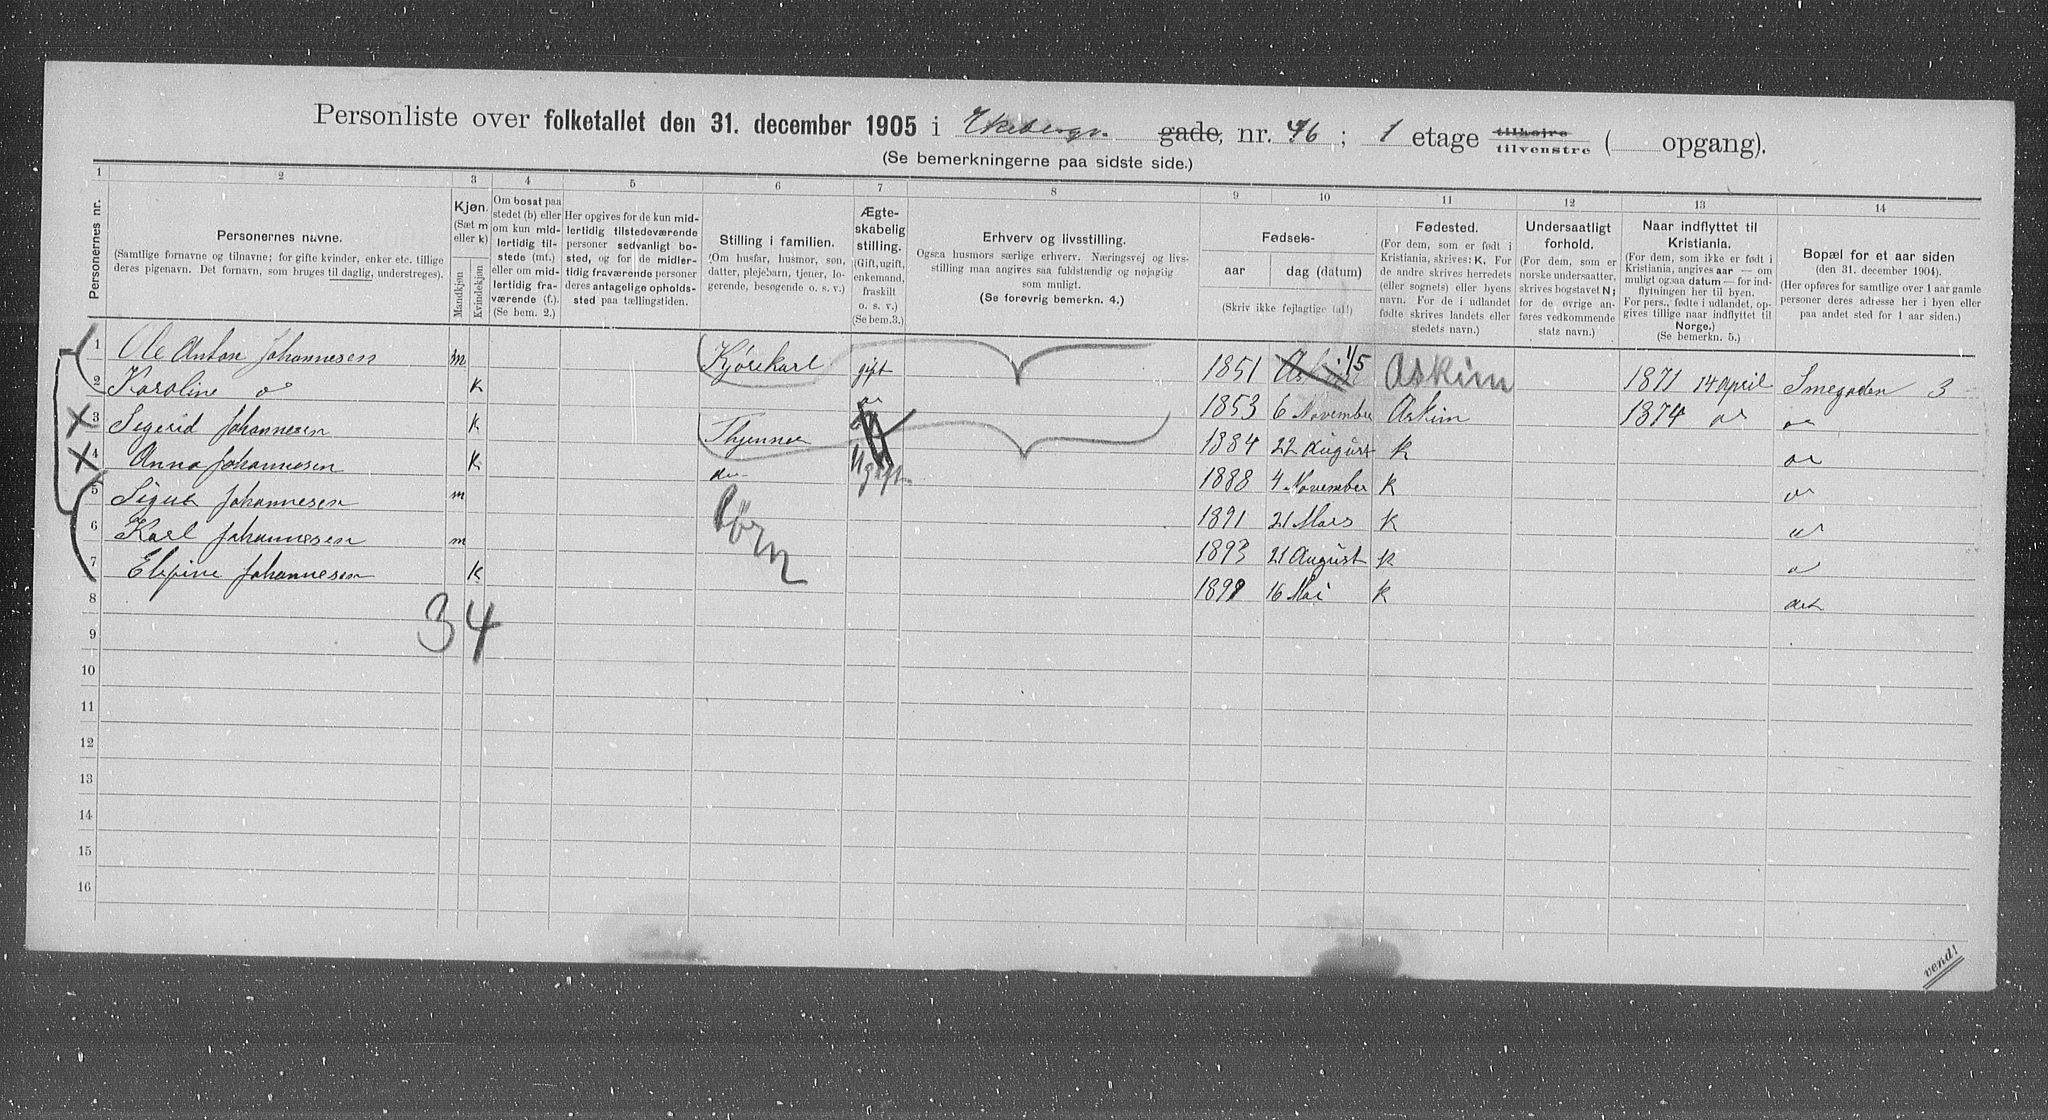 Personliste over folketallet den 31. december 1905 i Ekebergv. gade, nr. 46 ; 1 etage tilhøjre tilvenstre ( opgang).
(Se bemerkningerne paa sidste side.)
1 2 3 4 5 6 7 8 9 10 11 12 13 14
Personernes nr.
Personernes navne.
(Samtlige fornavne og tilnavne; for gifte kvinder, enker etc. tillige
deres pigenavn. Det fornavn, som bruges til daglig, understreges).
Kjøn.
(Sæt m
eller k)
Mandkjøn
Kvindekjøn
Om bosat paa
stedet (b) eller
om kun mid-
lertidig til-
stede (mt.)
eller om mid-
lertidig fra-
værende (f.).
(Se bem. 2.)
Her opgives for de kun mid-
lertidig tilstedeværende
personer sedvanligt bo-
sted, og for de midler-
tidig fraværende personer
deres antagelige opholds-
sted paa tællingstiden.
Stilling i familien.
(Om husfar, husmor, søn,
datter, plejebarn, tjener, lo-
gerende, besøgende o. s. v.)
Ægte-
skabelig
stilling.
(Gift, ugift,
enkemand,
fraskilt
o. s. v.)
(Se bem.3.)
Erhverv og livsstilling.
Ogsaa husmors særlige erhverv. Næringsvej og livs-
stilling maa angives saa fuldstændig og nøjagtig
som muligt.
(Se forøvrig bemerkn. 4.)
Fødsels-
aar dag (datum)
(Skriv ikke fejlagtige tal!)
Fødested.
(For dem, som er født i
Kristiania, skrives: K. For
de andre skrives herredets
(eller sognets) eller byens
navn. For de i udlandet
fødte skrives landets eller
stedets navn.)
Undersaatligt
forhold.
(For dem, som er
norske undersaatter,
skrives bogstavet N;
for de øvrige an-
føres vedkommende
stats navn.)
Naar indflyttet til
Kristiania.
(For dem, som ikke er født i
Kristiania, angives aar — om
muligt ogsaa datum — for ind-
flytningen her til byen.
For pers., fødte i udlandet, op-
gives tillige naar indflyttet til
Norge.)
(Se bemerkn. 5.)
Bopæl for et aar siden
(den 31. december 1904).
(Her opføres for samtlige over 1 aar gamle
personer deres adresse her i byen eller
paa andet sted for 1 aar siden.)
1 Ole Anton Johannesen m Kjørekarl gift 1851 1/5 Askim 1871 14 april Smegaden 3
2 Karoline do k do 1853 6 November Askim 1874 do do
3 Sigrid Johannesen k 1884 22 August k do
4 Anna Johannesen k do Ugift. 1888 4 November k do
5 Johannesen m Børn 1891 21 Mars k do
6 Karl Johannesen m 1893 21 August k do
7 Johannesen k 16 Mai k det
34
8
9
10
11
12
13
14
15
16
vend!